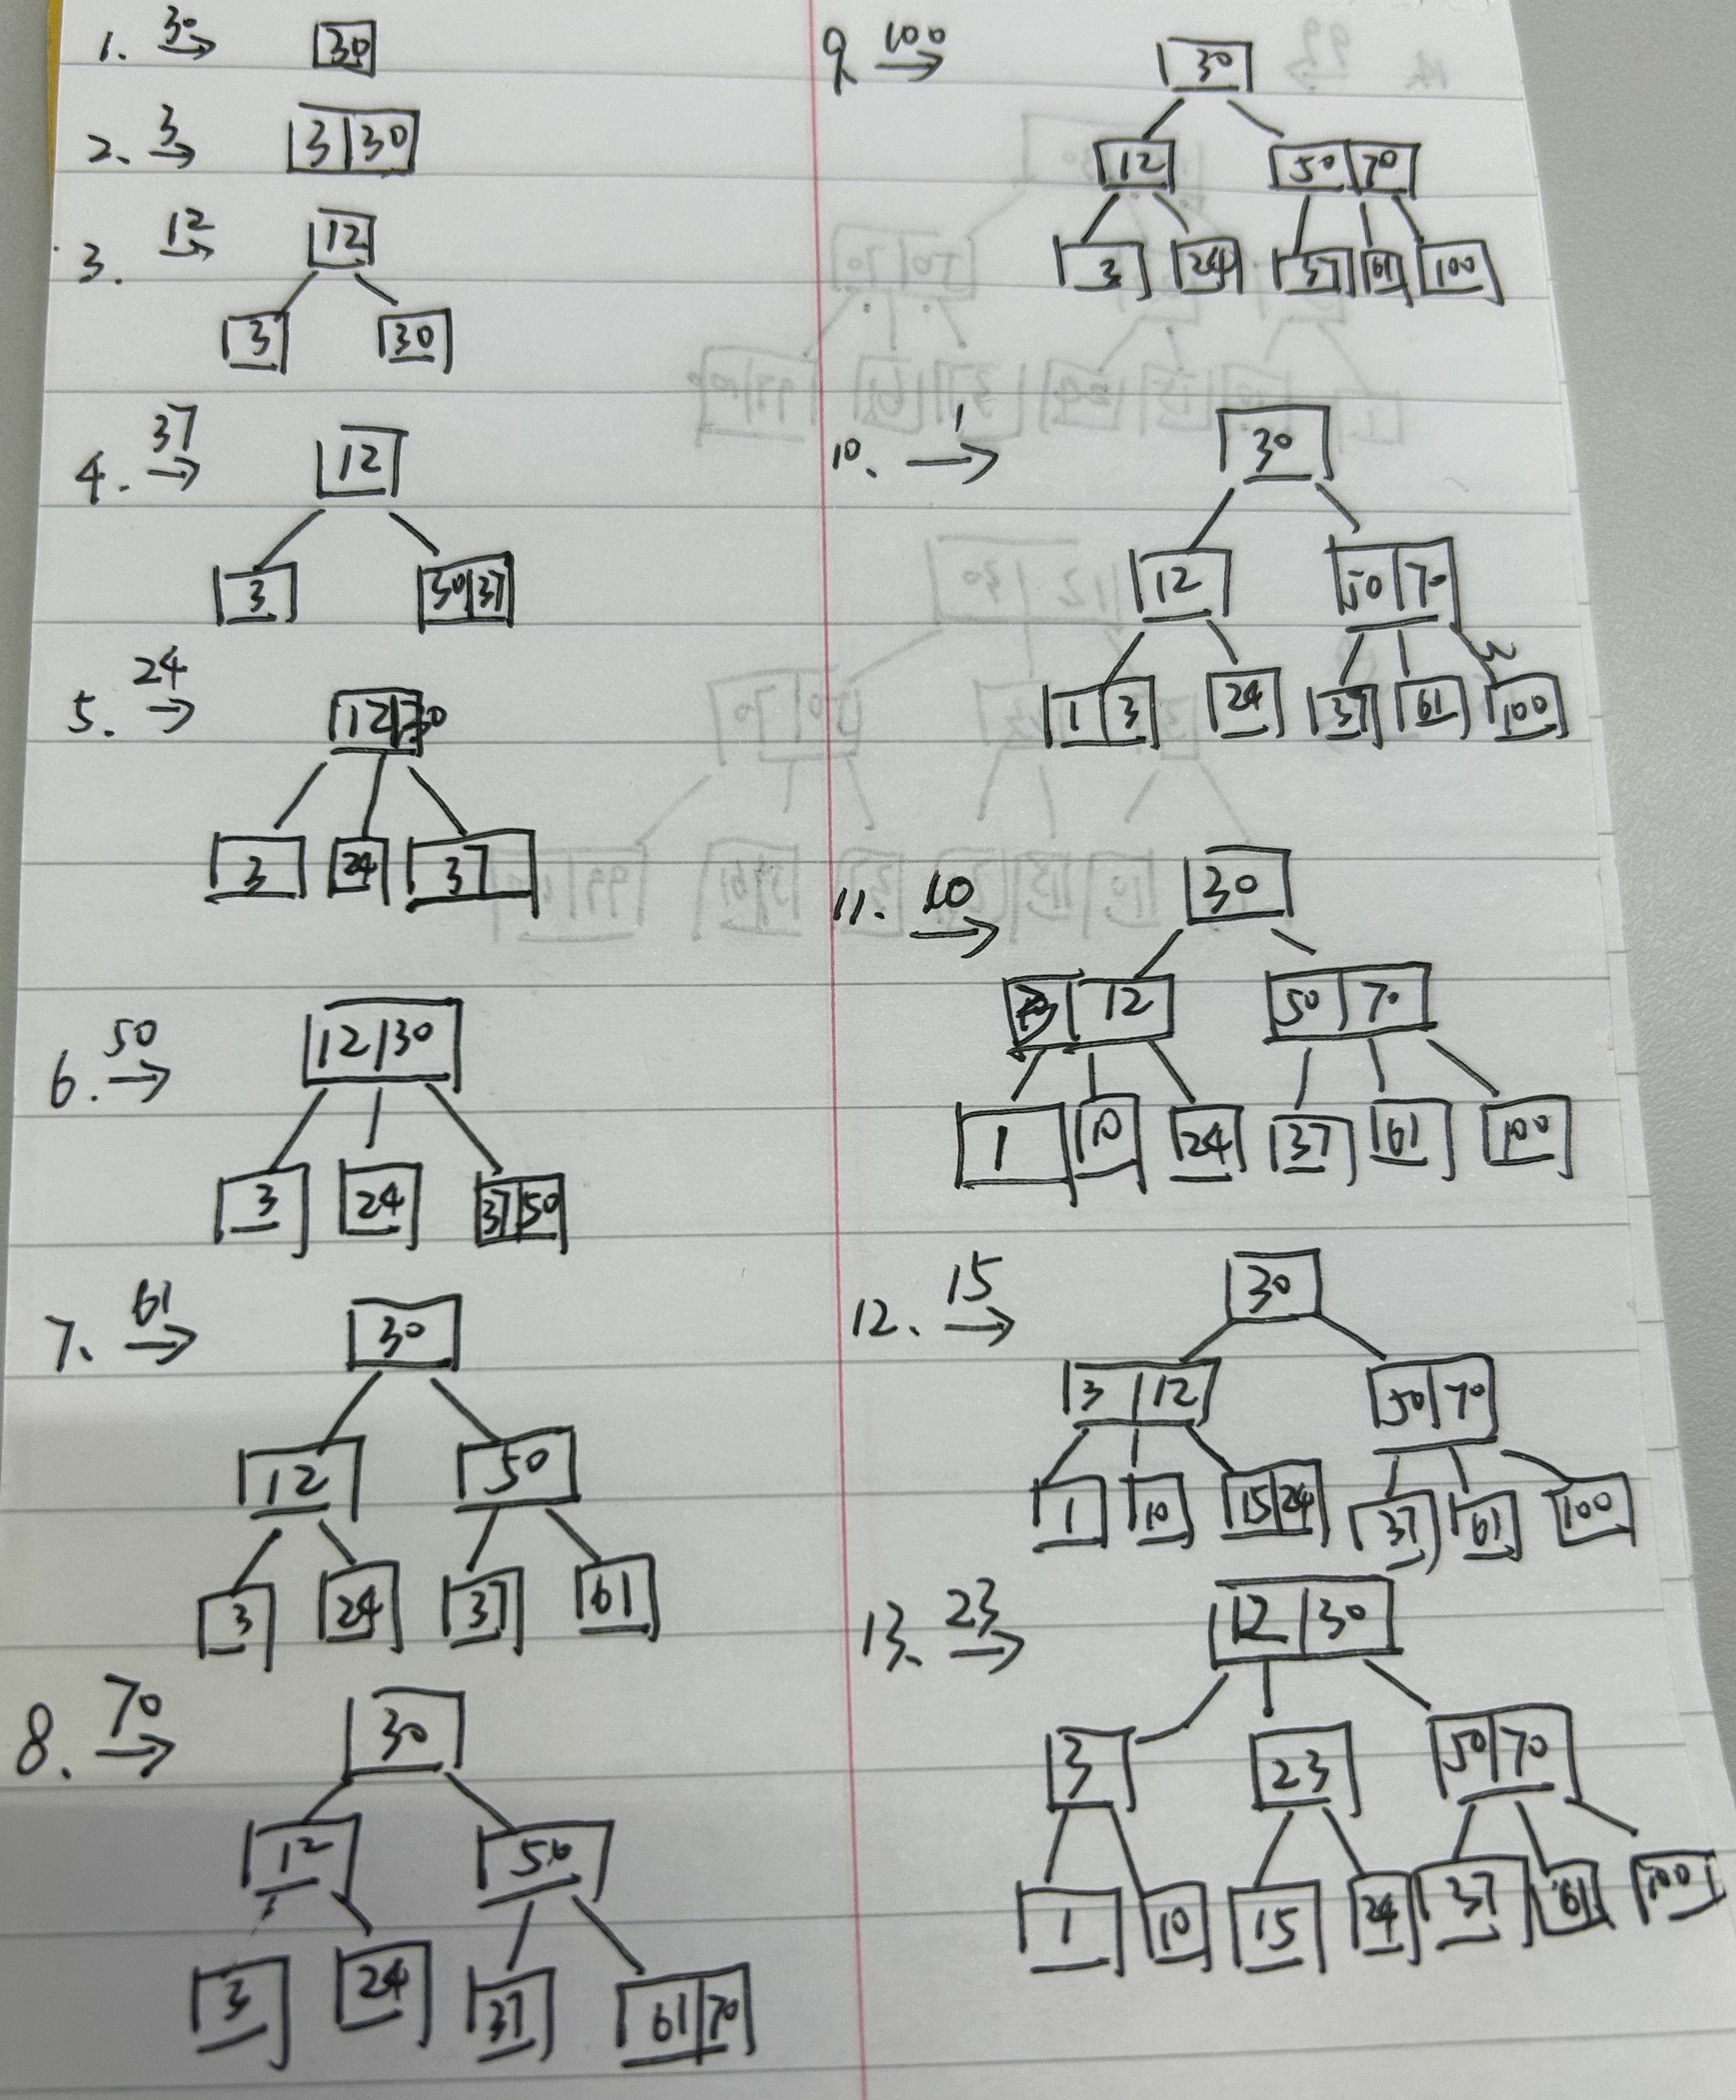 1. 30 → 30
2. 3 → 3 30
3. 12 → 12
3 30
4. 37 → 12
3 30 37
5. 24 → 12 30
3 24 37
6. 50 → 12 30
3 24 37 50
7. 61 → 30
12 50
3 24 37 61
8. 70 → 30
12 50
3 24 37 61 70
9. 100 → 30
12 50 70
3 24 37 61 100
10. 1 → 30
12 50 70
1 3 24 37 61 100
11. 10 → 30
12 50 70
1 10 24 37 61 100
12. 15 → 30
3 12 50 70
1 10 15 24 37 61 100
13. 23 → 12 30
3 23 50 70
1 10 15 24 37 61 100